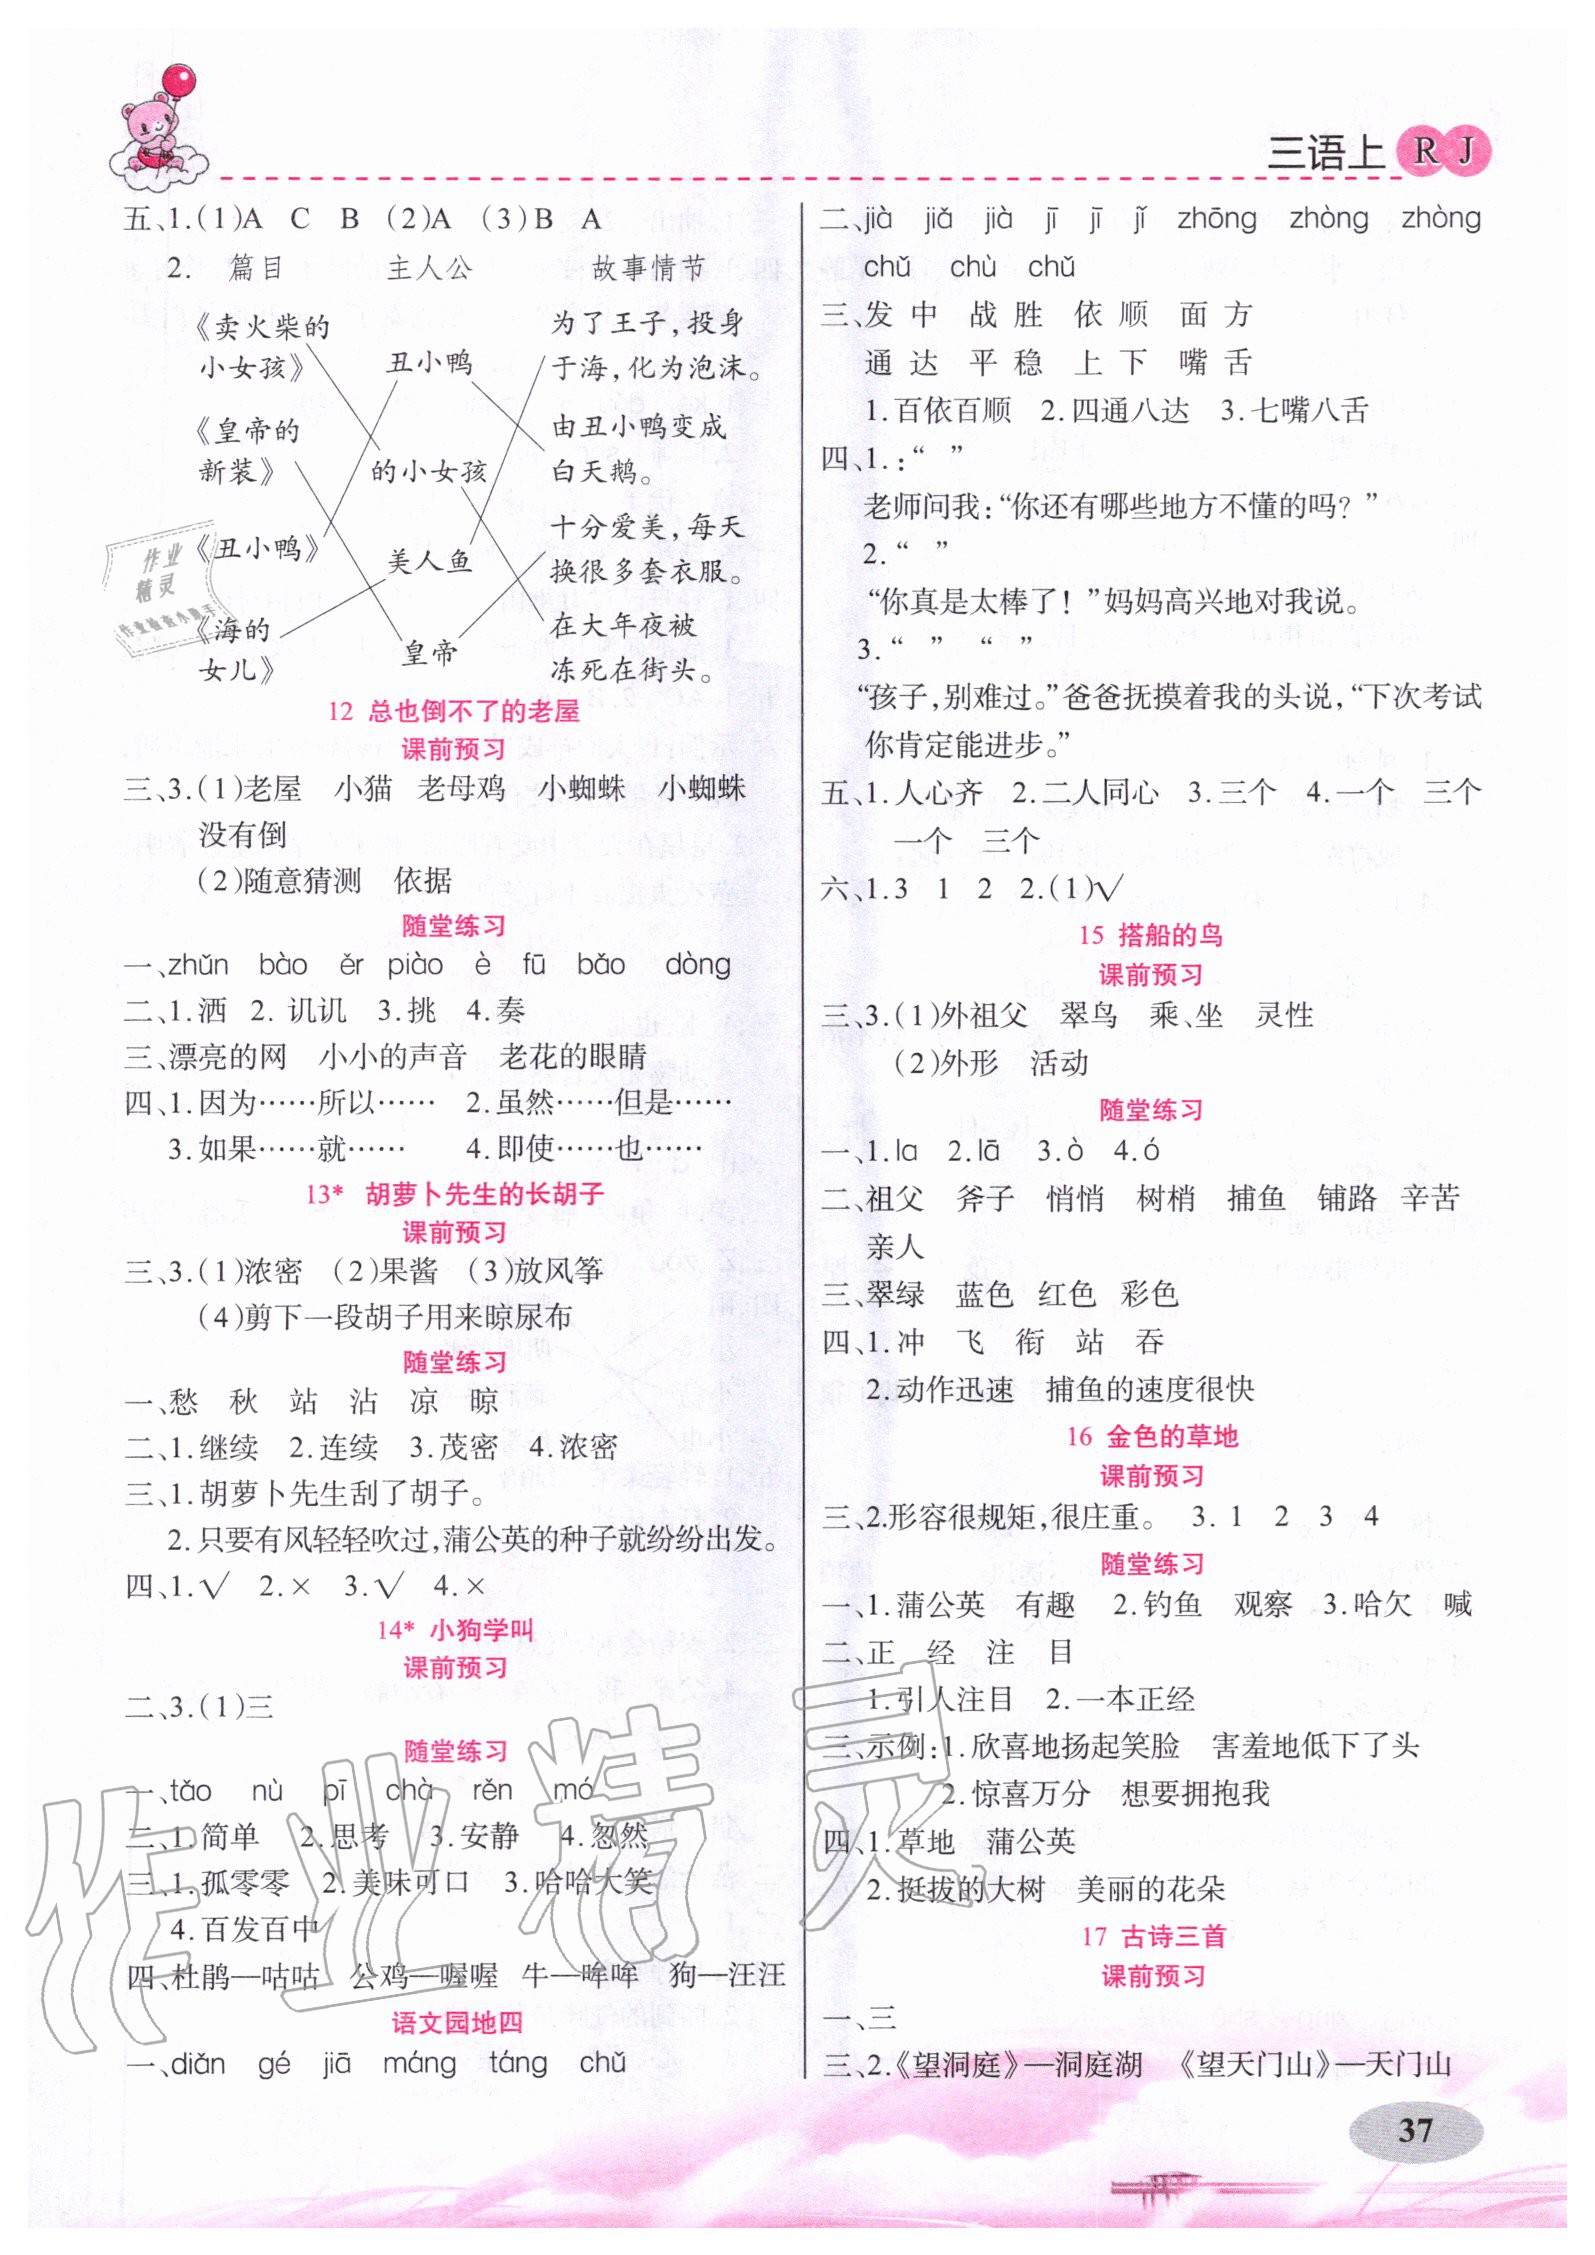 三语上 R J
五、1.(1)A C B (2)A (3)B A
2. 篇目 主人公 故事情节
《卖火柴的
小女孩》
《皇帝的
新装》
《丑小鸭》
《海的
女儿》
丑小鸭
的小女孩
美人鱼
皇帝
为了王子，投身
于海，化为泡沫。
由丑小鸭变成
白天鹅。
十分爱美，每天
换很多套衣服。
在大年夜被
冻死在街头。
12 总也倒不了的老屋
课前预习
三、3.(1)老屋 小猫 老母鸡 小蜘蛛 小蜘蛛
没有倒
(2)随意猜测 依据
随堂练习
一、zhǔn bào ěr piào è fū bǎo dòng
二、1.洒 2. 讥讥 3.挑 4.奏
三、漂亮的网 小小的声音 老花的眼睛
四、1.因为……所以…… 2.虽然……但是……
3.如果……就…… 4.即使……也……
13* 胡萝卜先生的长胡子
课前预习
三、3.(1)浓密 (2)果酱 (3)放风筝
(4)剪下一段胡子用来晾尿布
随堂练习
一、愁 秋 站 沾 凉 晾
二、1.继续 2.连续 3.茂密 4.浓密
三、1.胡萝卜先生刮了胡子。
2.只要有风轻轻吹过，蒲公英的种子就纷纷出发。
四、1.√ 2.× 3.√ 4.×
14* 小狗学叫
课前预习
二、3.(1)三
随堂练习
一、tǎo nù pī chà rěn mó
二、1.简单 2.思考 3.安静 4.忽然
三、1.孤零零 2.美味可口 3.哈哈大笑
4.百发百中
四、杜鹃—咕咕 公鸡—喔喔 牛—哞哞 狗—汪汪
语文园地四
一、diǎn gé jiā máng táng chǔ
二、jià jiǎ jià jī jī jǐ zhōng zhòng zhòng
chǔ chù chǔ
三、发 中 战 胜 依 顺 面 方
通 达 平 稳 上 下 嘴 舌
1.百依百顺 2.四通八达 3.七嘴八舌
四、1.：“ ”
老师问我：“你还有哪些地方不懂的吗？”
2.“ ”
“你真是太棒了！”妈妈高兴地对我说。
3.“ ” “ ”
“孩子，别难过。”爸爸抚摸着我的头说，“下次考试
你肯定能进步。”
五、1.人心齐 2.二人同心 3.三个 4.一个 三个
一个 三个
六、1.3 1 2 2.(1)√
15 搭船的鸟
课前预习
三、3.(1)外祖父 翠鸟 乘、坐 灵性
(2)外形 活动
随堂练习
一、1.la 2.lā 3.ò 4.ó
二、祖父 斧子 悄悄 树梢 捕鱼 铺路 辛苦
亲人
三、翠绿 蓝色 红色 彩色
四、1.冲 飞 衔 站 吞
2.动作迅速 捕鱼的速度很快
16 金色的草地
课前预习
三、2.形容很规矩，很庄重。 3. 1 2 3 4
随堂练习
一、1.蒲公英 有趣 2.钓鱼 观察 3.哈欠 喊
二、正 经 注 目
1.引人注目 2.一本正经
三、示例：1.欣喜地扬起笑脸 害羞地低下了头
2.惊喜万分 想要拥抱我
四、1.草地 蒲公英
2.挺拔的大树 美丽的花朵
17 古诗三首
课前预习
一、三
三、2.《望洞庭》—洞庭湖 《望天门山》—天门山
37
作业
精灵
作业检查小助手
作业精灵